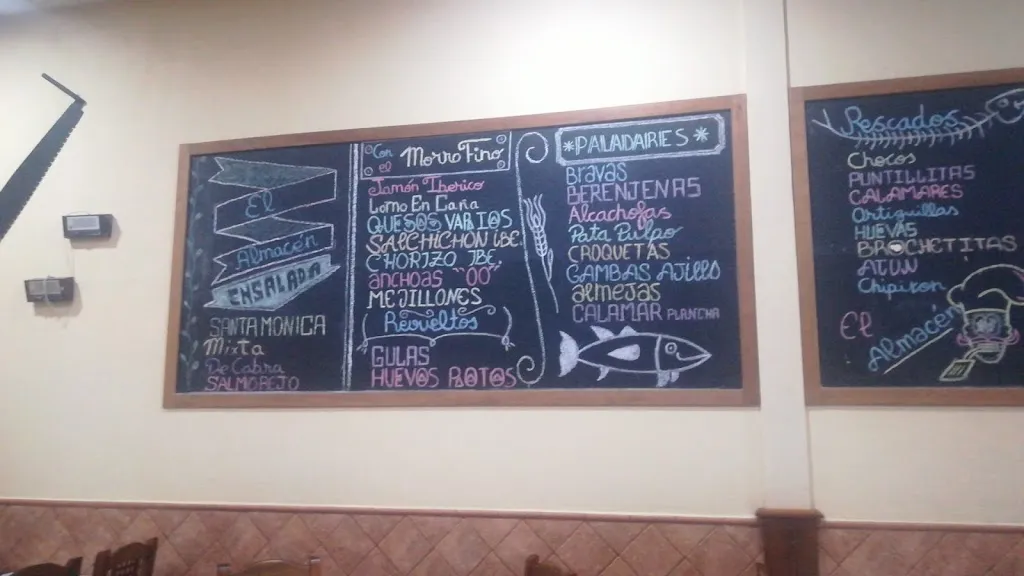 El
Almacén
ENSALADA
SANTA MONICA
Mixta
De Cabra
SALMOREJO
Con
el Morro Fino
Jamón Iberico
Lomo En Caña
QUESOS VARIOS
SALCHICHON IBE.
CHORIZO IBE.
anchoas "00"
MEJILLONES
Revueltos
GULAS
HUEVOS ROTOS
*PALADAIRES*
Bravas
BERENJENAS
Alcachofas
Pata Pulpo
CROQUETAS
GAMBAS AJillo
almejas
CALAMAR PLANCHA
Pescados
Chocos
PUNTILLITAS
CALAMARES
Ortiguillas
HUEVAS
BROCHETITAS
ATUN
Chipiron
El
Almacén